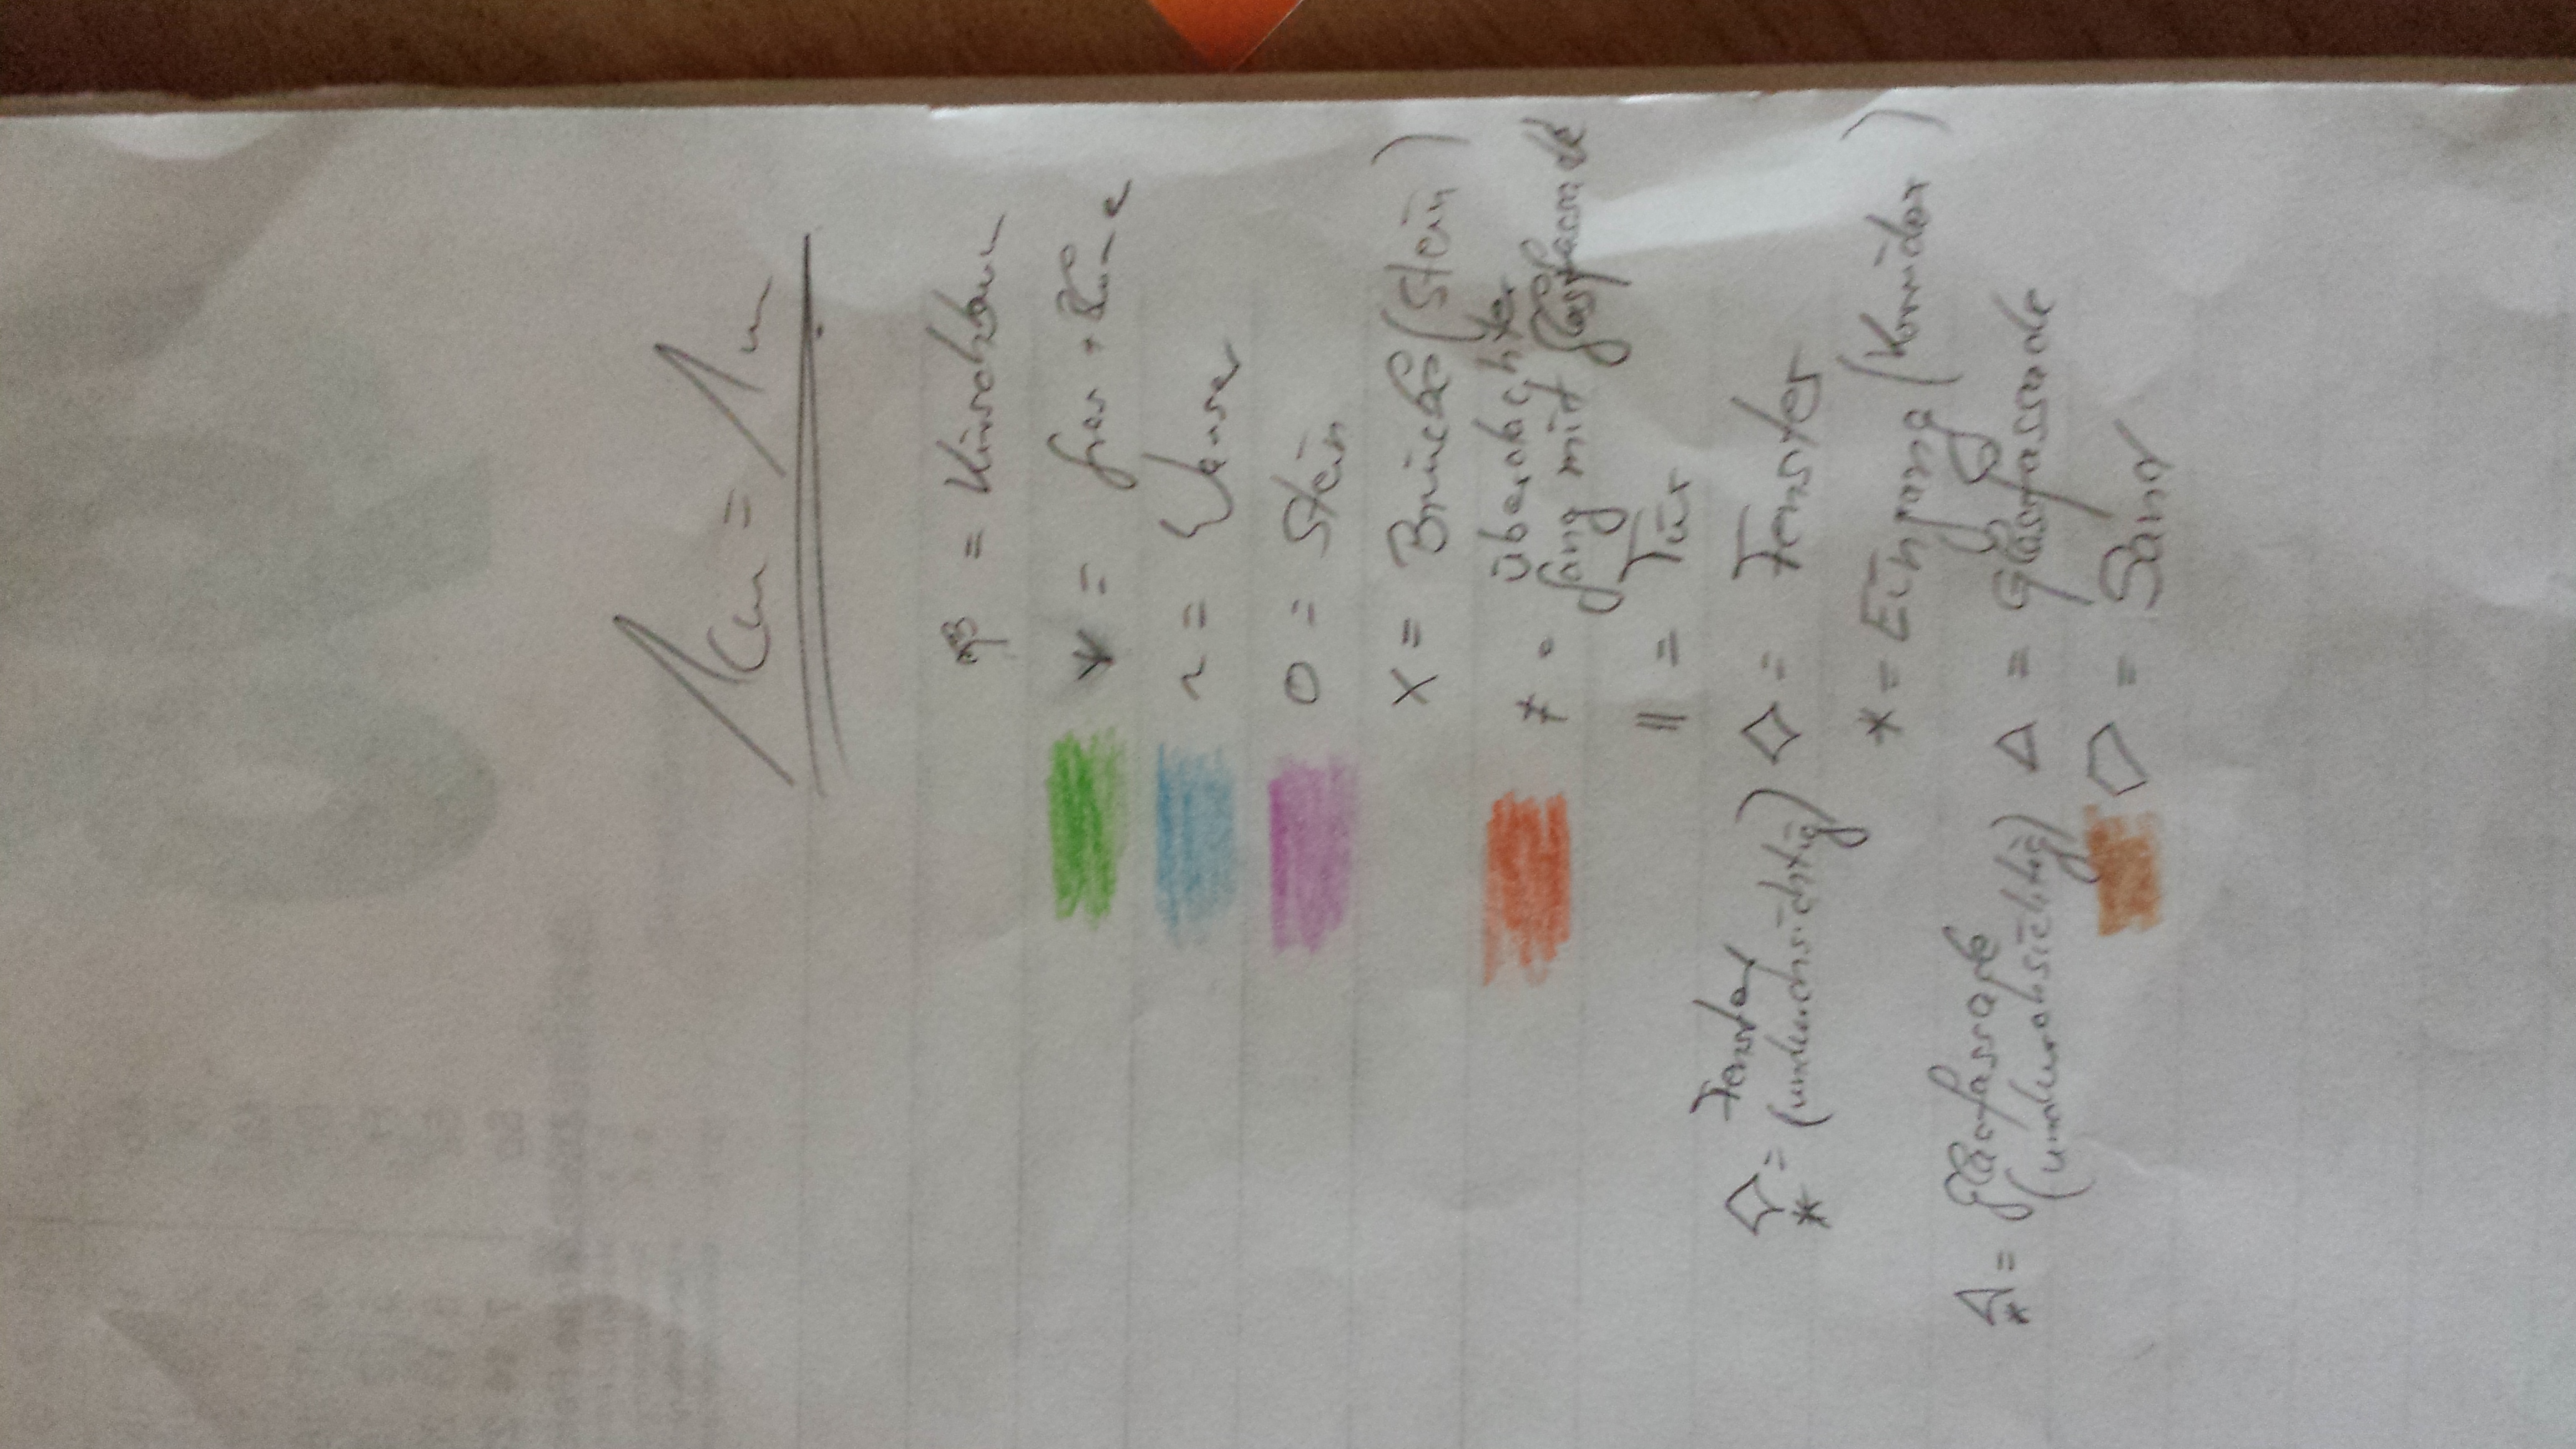 1cm = 1m
= Kirschbaum
= Gras + Blume
~ = Wasser
O = Stein
X = Brücke (Stein)
≠ = überdachter
Gang mit Glasfassade
|| = Tür
◇ = Fenster
◇* = Fenster
(undurchsichtig)
* = Eingang (Korridor)
△ = Glasfassade
△* = Glasfassade
(undurchsichtig)
⬠ = Sand